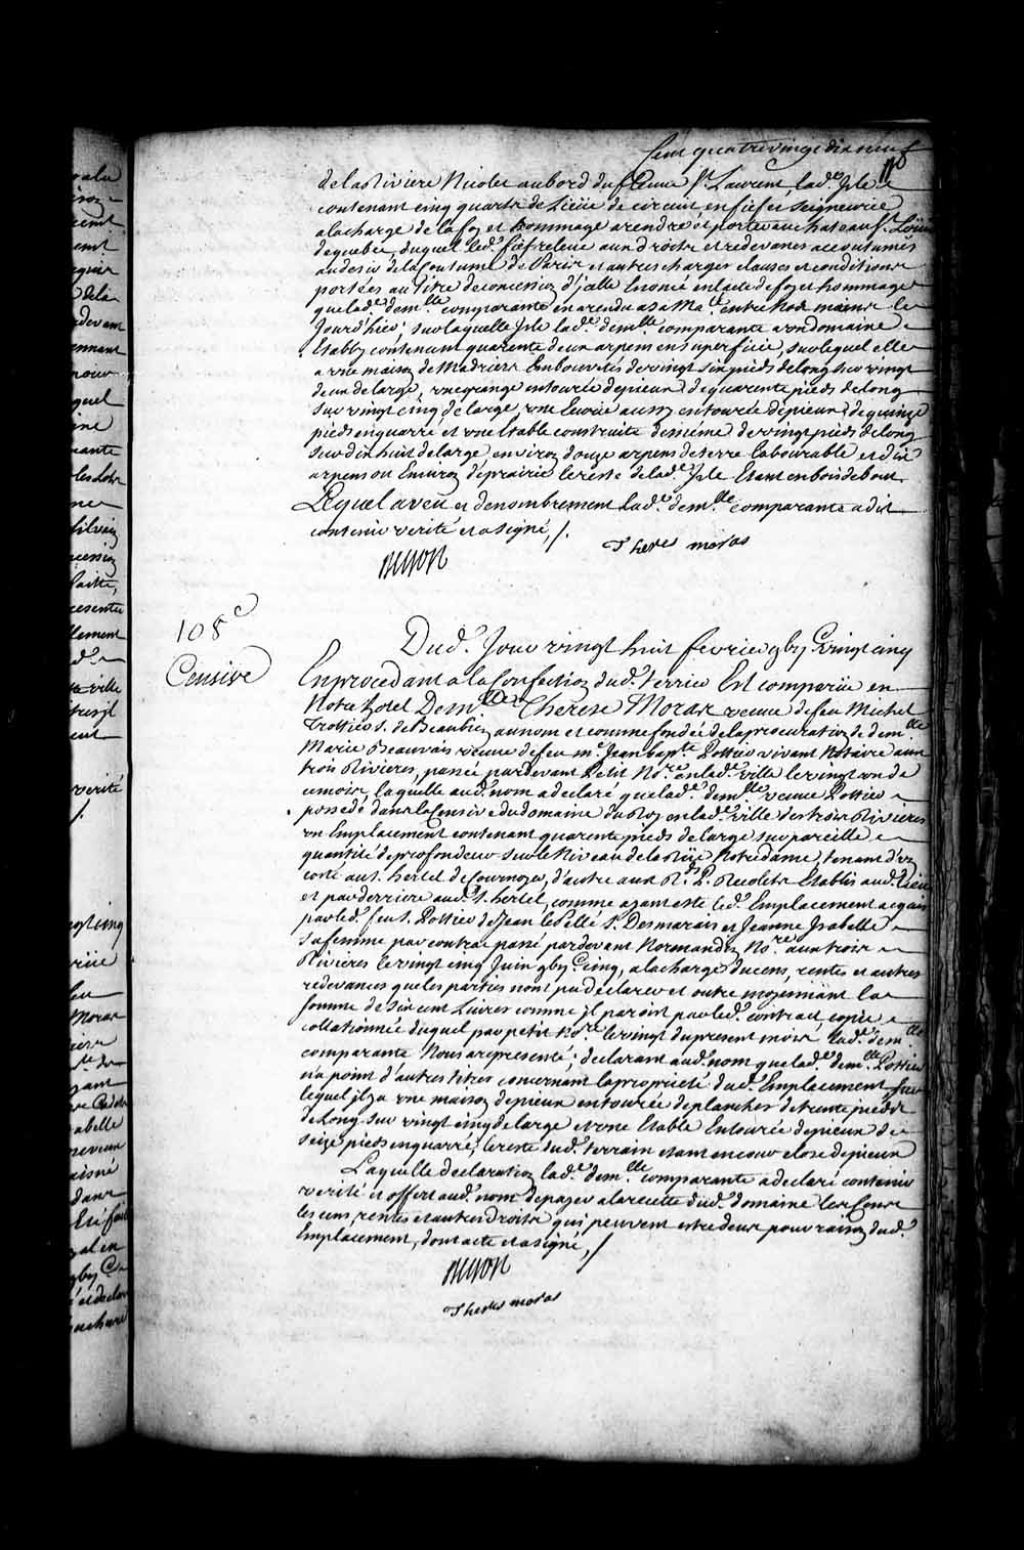 Cent quatre vingt dix neuf
110
de la Riviere Nicolet au bord du fleuve St. Laurent, lad.e Isle
contenant cinq quarts de Lieüe de circuit en fief et seigneurie
a la charge de la foy et hommage a rendre et porter au chateau St. Loüis
de quebec, duquel led. fief releve aux droits et redevances accoutumés
au desir de la Coutume de Paris et autres charges clauses et conditions
portées au titre de concession d'jcelle Enoncé en l'acte de foy et hommage
que lad.e dem.lle comparante en a rendu a Sa Ma.té entre Nos mains le
Jourd'hier sur laquelle Isle lad.e dem.lle comparante a un domaine
Etably contenant quarente deux arpens en superficie, sur lequel elle
a une maison de Madriers Embouvetés de vingt six pieds de long sur vingt
deux de large, une grange entourée de pieux de quarente pieds de long
sur vingt cinq de large, une Ecurie aussy entourée de pieux de quinze
pieds en quarré et une Etable construite de même de vingt pieds de long
sur dix huit de large environ douze arpens de terre labourable et dix
arpens ou Environ de prairie le reste de lad.e Isle Etant en bois debout.
Lequel aveu et denombrement lad.e dem.lle comparante a dit
contenir verité et a signé, /.
Theres moras
108e
Censive
Dud. Jour vingt huit fevrier gbij C vingt cinq
En procedant a la Confection dud. Terrier Est comparüe en
Notre hotel Dem.lle Therese Moras veuve de feu Michel
Trottier S. de Beaubien au nom et comme fondée de la procuration de dem.lle
Marie Beauvais veuve de feu m.e Jean bap.te Pottier vivant Notaire aux
trois Rivieres, passée pardevant Petit No.re en lad.e ville le vingt un de
ce mois, laquelle aud. nom a declaré que lad.e dem.lle veuve Pottier
possede dans la Censive du domaine du Roy en lad.e ville des trois Rivieres
un Emplacement contenant quarente pieds de large sur pareille
quantité de profondeur sur le Niveau de la Rüe Notre dame, tenant d'un
costé au S. hertel de Cournoyer, d'autre aux R.ds P. Recolets Etablis aud. Lieu
et par derriere aud. S. hertel, comme ayant esté led. Emplacement acquis
par led. feu S. Pottier de Jean le Pellé S. Desmarais et Jeanne Isabelle
sa femme par contrat passé pardevant Normandin No.re aux trois
Rivieres le vingt cinq Juin gbij C cinq, a la charge du cens, rentes et autres
redevances que les parties n'ont pu declarer et outre moyennant la
somme de six cent Livres comme jl paroist par led. contrat, copie
collationnée duquel par petit No.re le vingt du present mois lad.e dem.lle
comparante Nous a representé; declarant aud. nom que lad.e dem.lle Pottier
n'a point d'autres titres concernant la proprieté dud. Emplacement sur
lequel jl y a une maison de pieux entourée de planches de trente pieds
de Long sur vingt cinq de large et une Etable Entourée de pieux de
seize pieds en quarré, le reste dud. terrain etant en cour close de pieux
Laquelle declaration lad.e dem.lle comparante a declaré contenir
verité et offert aud. nom de payer a la recette dud. domaine les Cens
les cens, rentes et autres droits qui peuvent estre deus pour raison dud.
Emplacement, dont acte et a signé, /
Theres moras